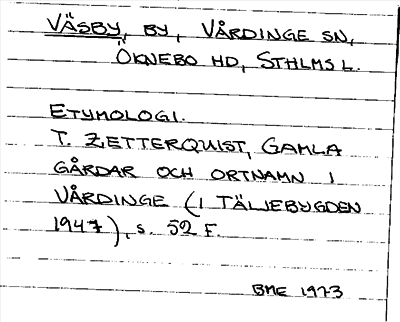 VÄSBY, BY, VÅRDINGE SN,
ÖKNEBO HD, STHLMS L.
ETYMOLOGI.
T. ZETTERQUIST, GAMLA
GÅRDAR OCH ORTNAMN I
VÅRDINGE (I TÄLJEBYGDEN
1947), s. 52 F.
BME 1973